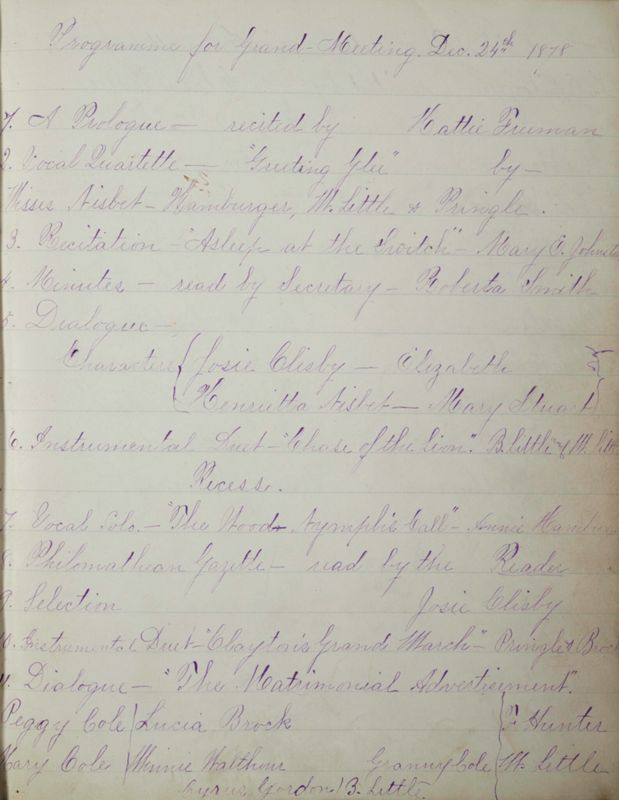 Programme for Grand-Meeting. Dec. 24th 1878
1. A Prologue — recited by Hattie Freeman
2. Vocal Quartette — "Greeting Glee" by —
Misses Nisbet — Hamburger, W. Little & Pringle.
3. Recitation — "Asleep at the Switch" — Mary E. Johnst
4. Minutes — read by Secretary — Roberta Smith
5. Dialogue —
Characters { Josie Clisby — Elizabeth
Henrietta Nisbet — Mary Stuart
6. Instrumental Duet — "Chase of the Lion". B. Little & W. Litt
Recess.
7. Vocal Solo. — "The Wood Nymph's Call" — Annie Hambur
8. Philomathean Gazette — read by the Reader
9. Selection Josie Clisby
10. Instrumental Duet — "Clayton's Grande March" — Pringle & Brock
11. Dialogue — "The Matrimonial Advertisement".
Peggy Cole } Lucia Brock { Hunter
Mary Cole } Minnie Walthour Granny Cole { W. Little
Cyrus Gordon } B. Little